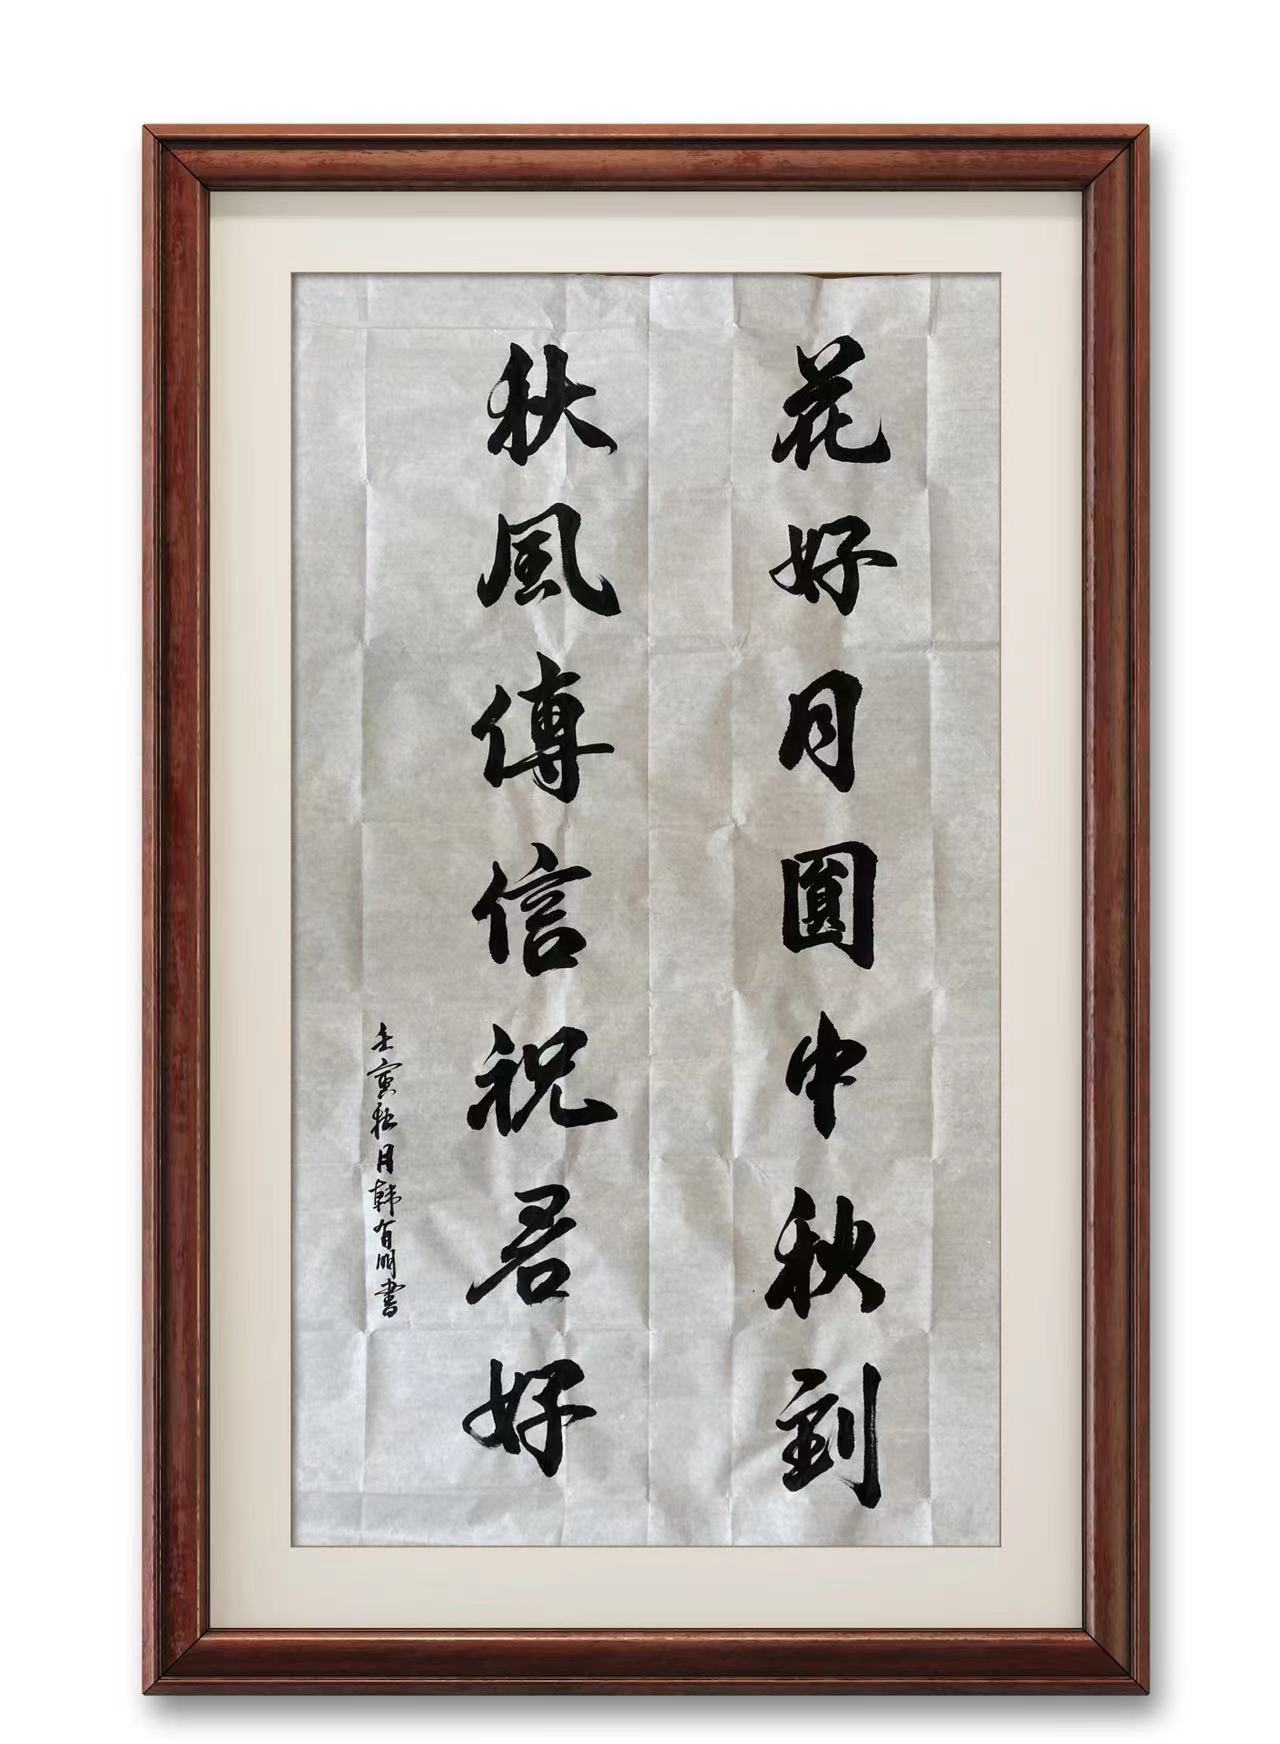 花好月圓中秋到
秋風傳信祝君好
壬寅秋月韩有明書